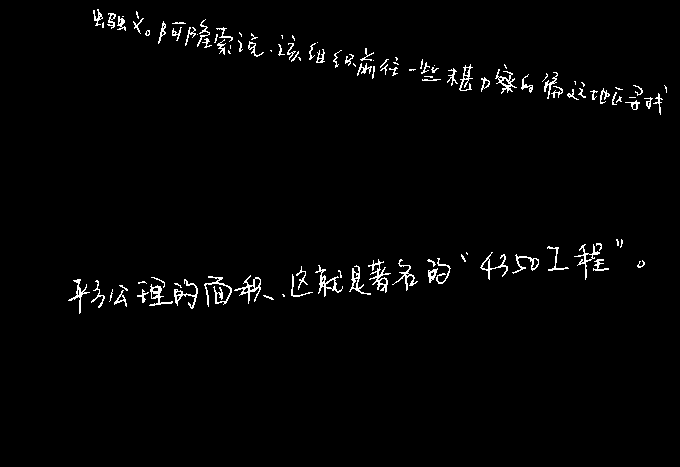 义。阿隆索说，该组织前往一些堪力察的偏远地区寻找
平方公理的面积，这就是著名的“4350工程”。